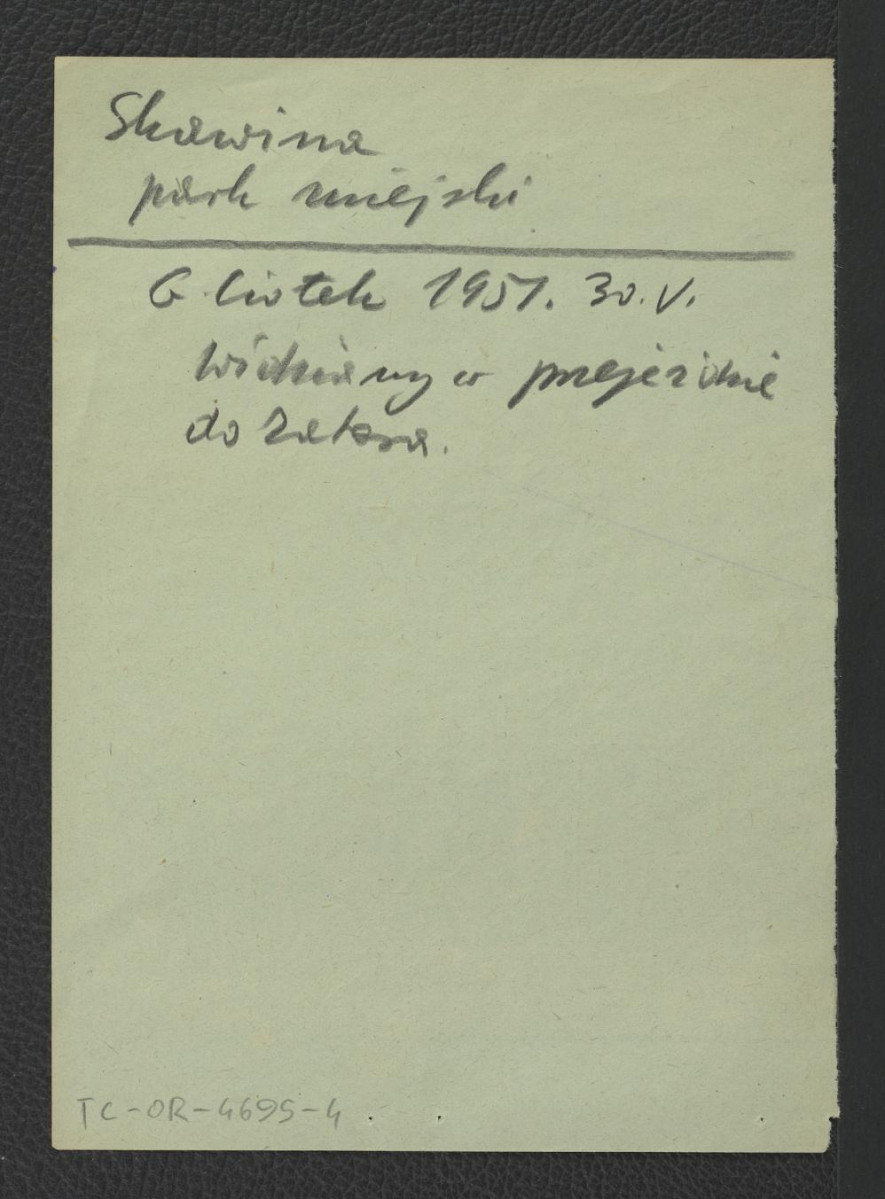 Skawina
park miejski
G. Ciołek 1951. 30.V.
Widziany w przejeździe
do Zatora.
TC-OR-4695-4